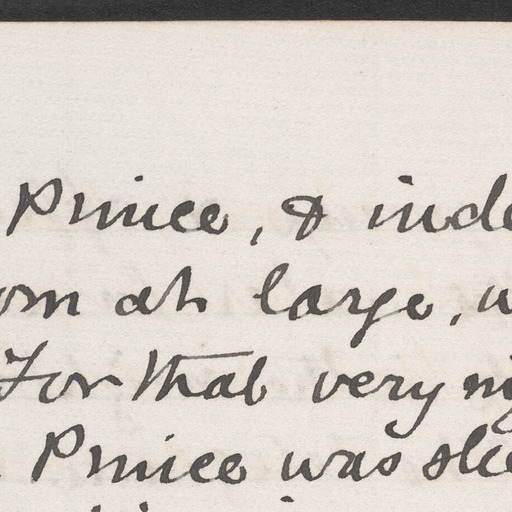 Prince, & inde
om at large, w
For that very nig
Prince was slee